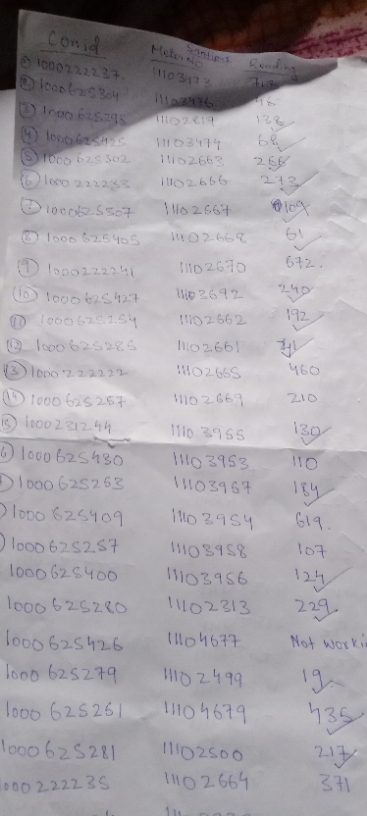 Con id Meter No Reading
① 1000222237 11103973
② 1000625304 11103976 46
③ 1000625295 11102819 138
④ 1000625425 11103974 68
⑤ 1000625302 11102663 266
⑥ 1000222233 11102666 273
⑦ 1000625307 11102667 109
⑧ 1000625405 11102668 61
⑨ 1000222241 11102670 672.
⑩ 1000625427 11103692 240
⑪ 1000625254 11102662 192
⑫ 1000625285 11102661 41
⑬ 1000222222 11102665 460
⑭ 1000625267 11102669 210
⑮ 1000231244 11103955 130
1000625430 11103953 110
1000625263 11103967 184
1000625409 11103954 619.
1000625257 11103958 107
1000625400 11103956 124
1000625280 11102313 229
1000625426 11104677 Not worki
1000625279 11102499 19
1000625261 11104679 435
1000625281 11102500 217
1000222235 11102664 371